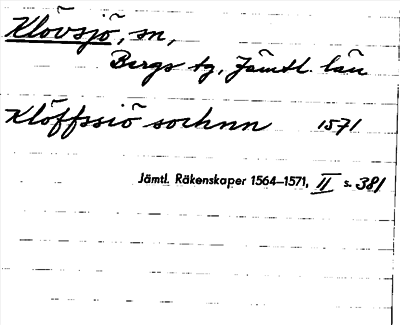 Klövsjö, sn,
Bergs tg, Jämtl. län
Klöffssiö sochnn 1571
Jämtl. Räkenskaper 1564–1571, II s. 381